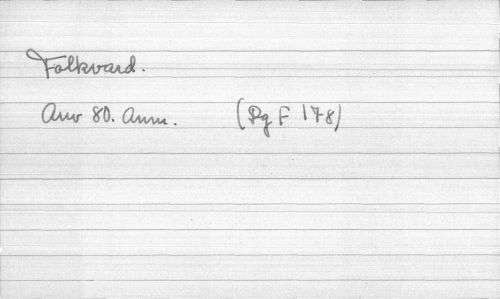 Folkvard.
Anv 80. Anm. (Pg F 178)